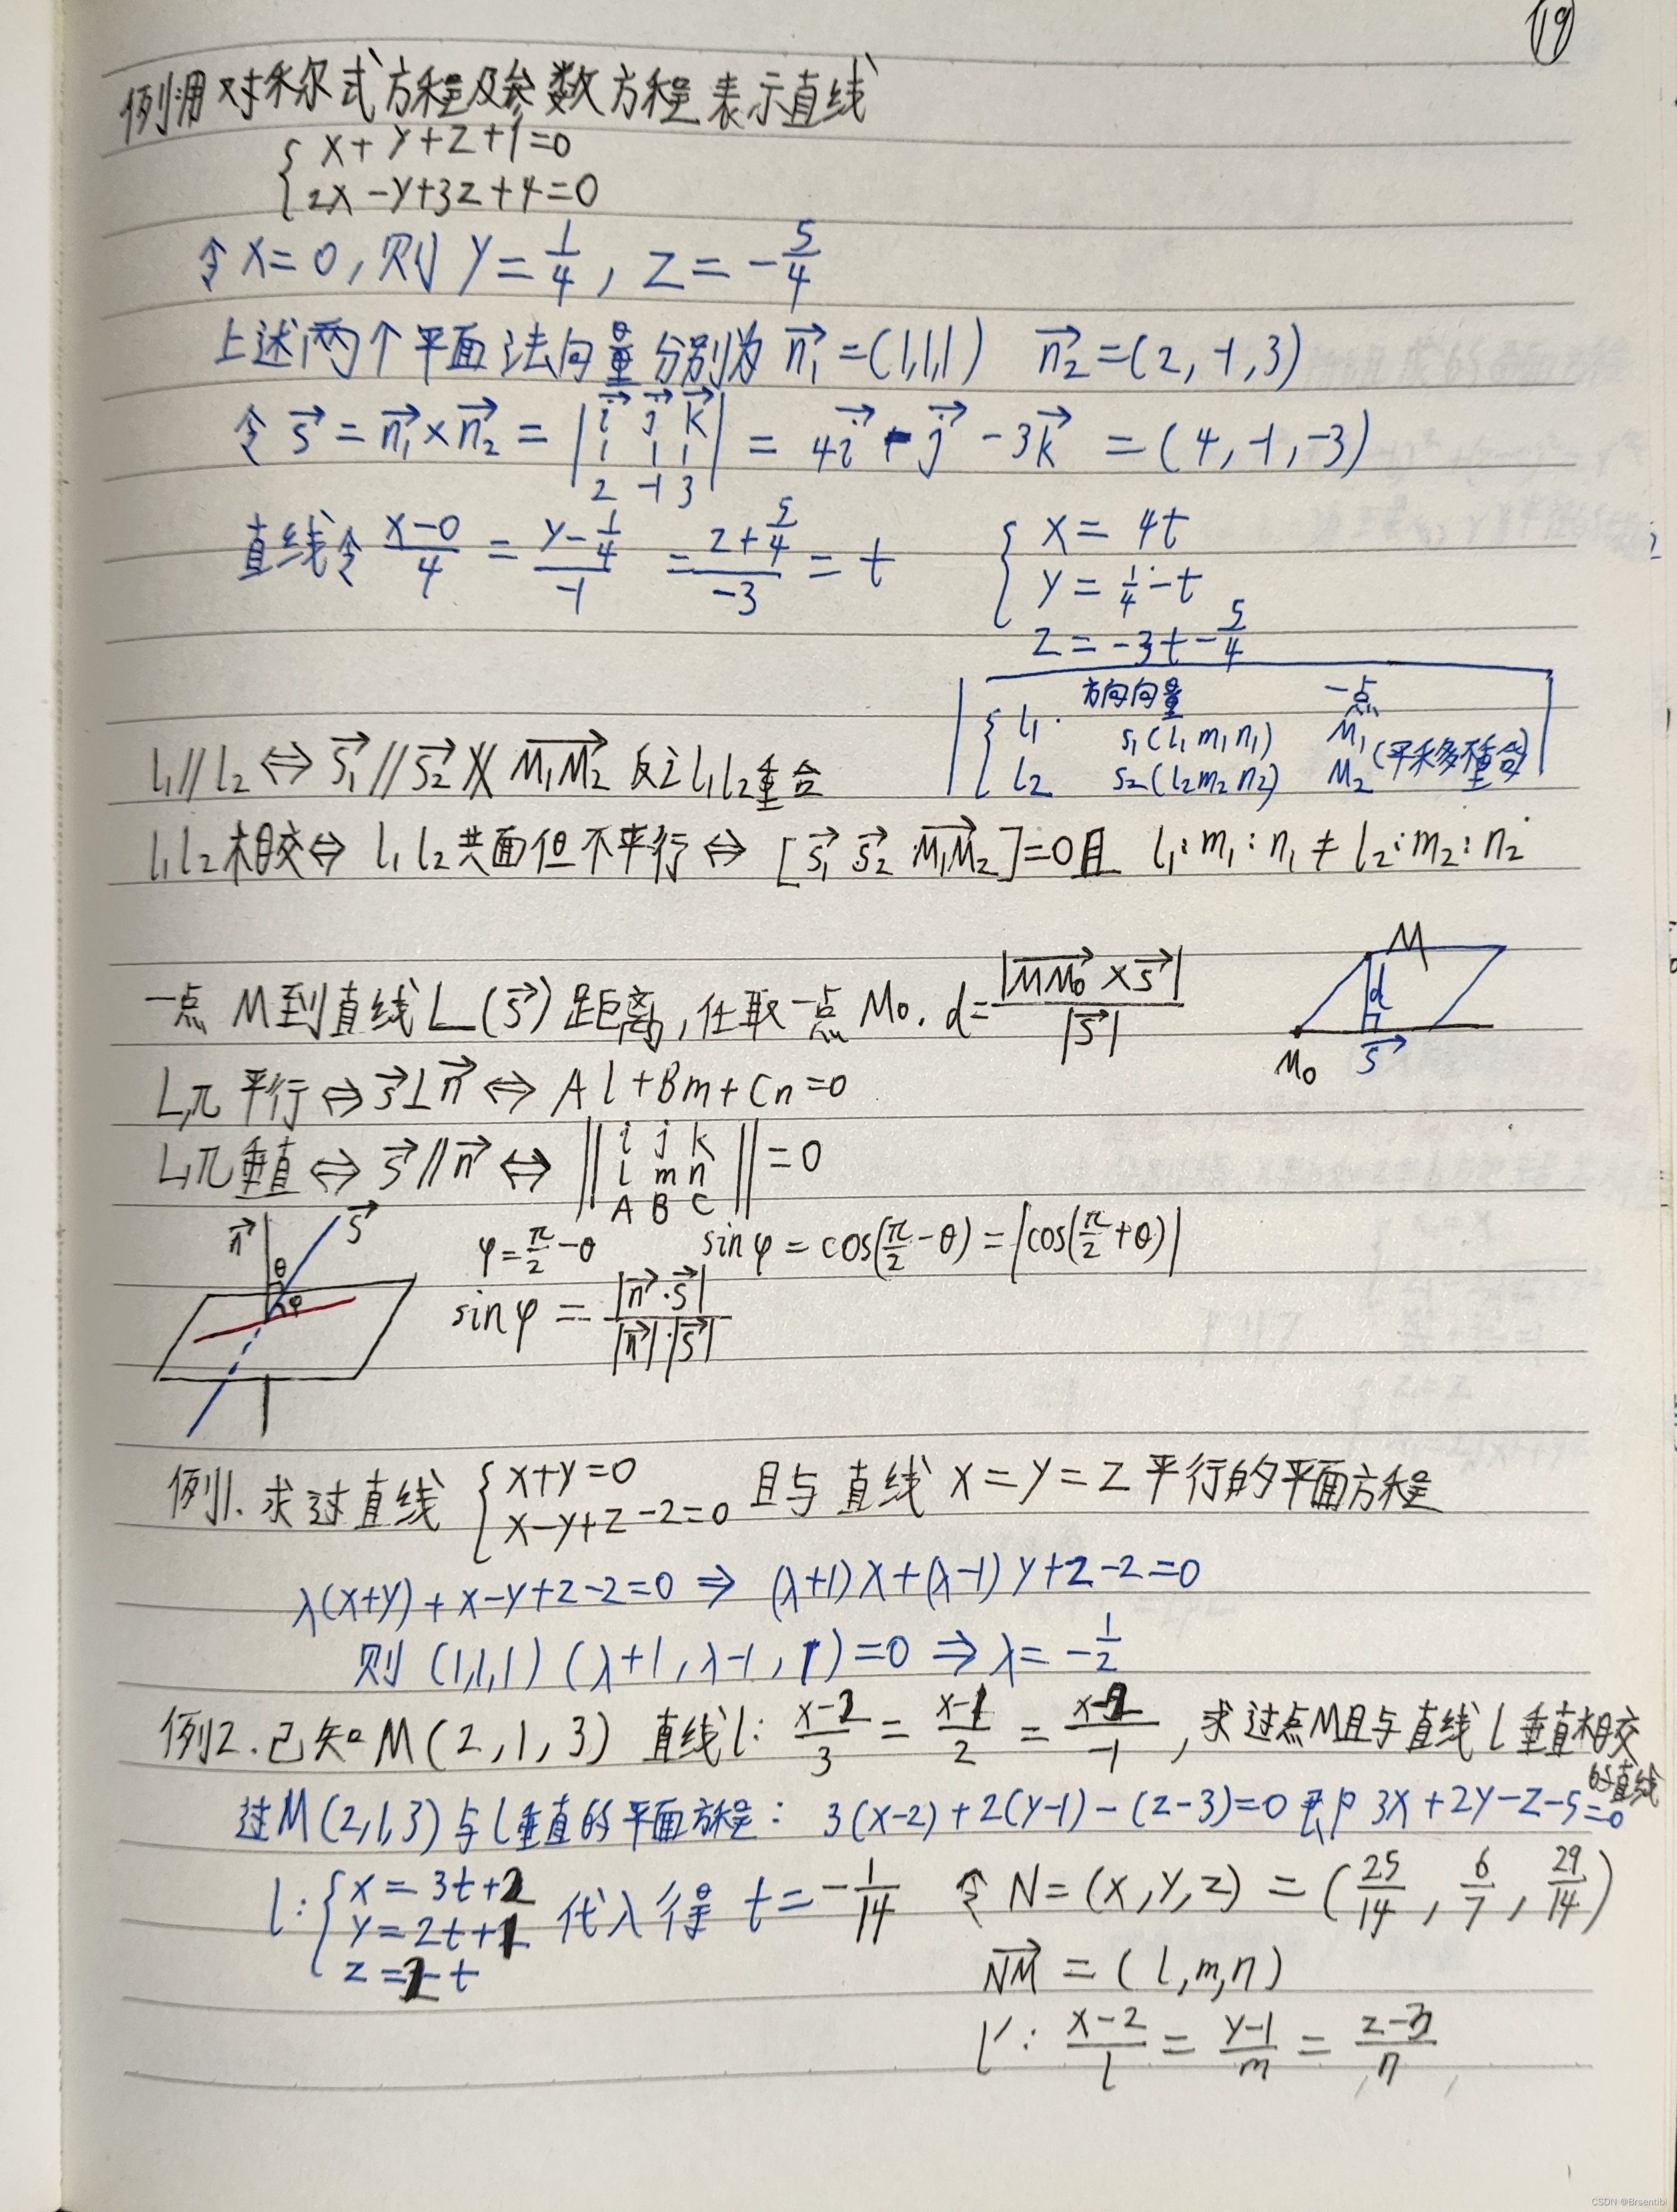 19
例 用对称式方程及参数方程表示直线
{ x+y+z+1=0
2x-y+3z+4=0
令 x=0, 则 y=1/4, z=-5/4
上述两个平面法向量分别为 n₁→=(1,1,1) n₂→=(2,-1,3)
令 s→=n₁→×n₂→= | i→ j→ k→ | = 4i→ - j→ - 3k→ = (4,-1,-3)
1 1 1
2 -1 3
直线令 (x-0)/4 = (y-1/4)/-1 = (z+5/4)/-3 = t
{ x= 4t
y= 1/4-t
z= -3t-5/4
方向向量 一点
{ l₁: s₁(l₁ m₁ n₁) M₁
l₂ s₂(l₂ m₂ n₂) M₂ (平移不重合)
l₁∥l₂ ⇔ s₁→∥s₂→ ∦ M₁M₂→ 反之l₁l₂重合
l₁l₂相交⇔ l₁l₂共面但不平行⇔ [s₁→ s₂→ M₁M₂→]=0且 l₁:m₁:n₁≠l₂:m₂:n₂
一点 M到直线L(s→)距离,任取一点 M₀. d=|MM₀→×s→|/|s→|
M
d
M₀ s→
L,π 平行⇔s→⊥n→⇔ Al+Bm+Cn=0
L,π垂直⇔ s→∥n→⇔ || i j k || =0
l m n
A B C
n→ s→
θ
φ
φ=π/2-θ sinφ=cos(π/2-θ)=|cos(π/2+θ)|
sinφ = |n→·s→|/|n→|·|s→|
例1. 求过直线 { x+y=0 且与直线 x=y=z平行的平面方程
x-y+z-2=0
λ(x+y)+x-y+z-2=0 ⇒ (λ+1)x+(λ-1)y+z-2=0
则 (1,1,1)(λ+1,λ-1,1)=0 ⇒ λ=-1/2
例2. 已知M(2,1,3) 直线l: (x-2)/3 = (x-1)/2 = (x-2)/-1, 求过点M且与直线l垂直相交
的直线
过M(2,1,3)与l垂直的平面方程: 3(x-2)+2(y-1)-(z-3)=0 即 3x+2y-z-5=0
l: { x=3t+2 代入得 t=-1/14 令 N=(x,y,z)=(25/14, 6/7, 29/14)
y=2t+1
z=2-t
NM→=(l,m,n)
l′: (x-2)/l = (y-1)/m = (z-3)/n
CSDN @Brsentibi